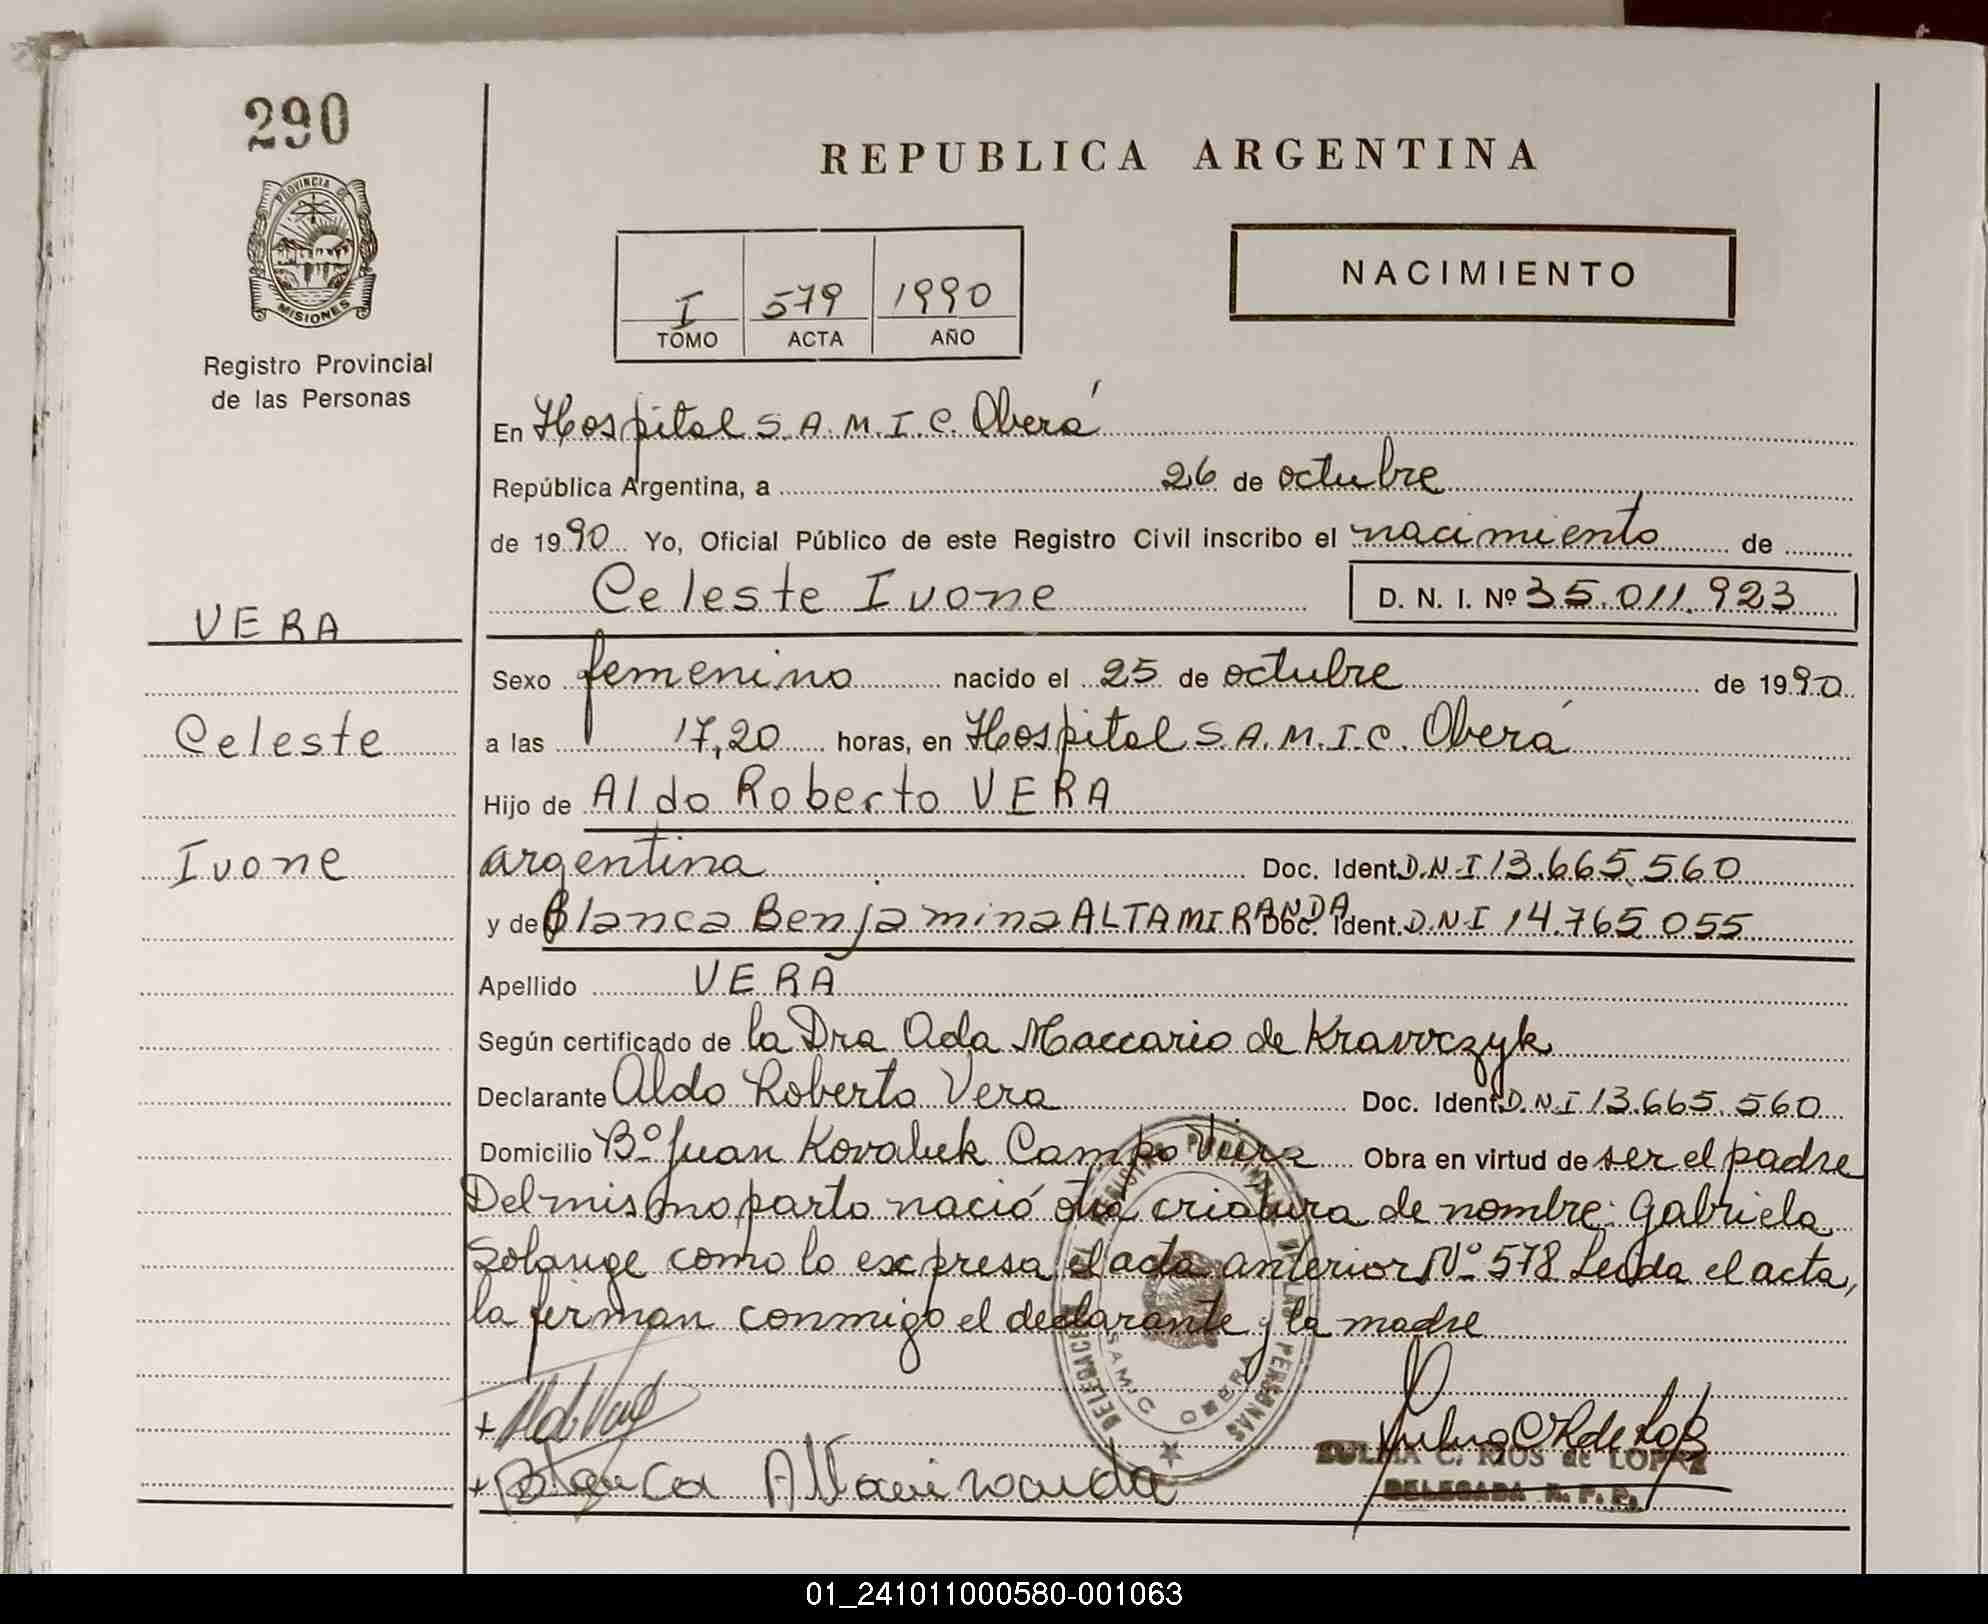 290
PROVINCIA D
MISIONES
Registro Provincial
de las Personas
REPUBLICA ARGENTINA
I 579 1990
TOMO ACTA AÑO
NACIMIENTO
En Hospital S.A.M.I.C. Oberá
República Argentina, a 26 de octubre
de 1990 Yo, Oficial Público de este Registro Civil inscribo el nacimiento de
Celeste Ivone D. N. I. Nº 35.011.923
VERA
Celeste
Ivone
Sexo femenino nacido el 25 de octubre de 1990
a las 17,20 horas, en Hospital S.A.M.I.C. Oberá
Hijo de Aldo Roberto VERA
argentina Doc. Ident. D.N.I 13.665.560
y de Blanca Benjamina ALTAMIRANDA Doc. Ident. D.N.I 14.765.055
Apellido VERA
Según certificado de la Dra Ada Maccario de Kravvczyk
Declarante Aldo Roberto Vera Doc. Ident. D.N.I 13.665.560
Domicilio Bº Juan Kovaluk Campo Viera Obra en virtud de ser el padre
Del mismo parto nació otra criatura de nombre: Gabriela
Solange como lo expresa el acta anterior Nº 578 Leída el acta,
la firman conmigo el declarante y la madre
Blanca Altamiranda
ZULMA C. RIOS de LOPEZ
DELEGADA R. P. P.
SAMIC OBERA
01_241011000580-001063